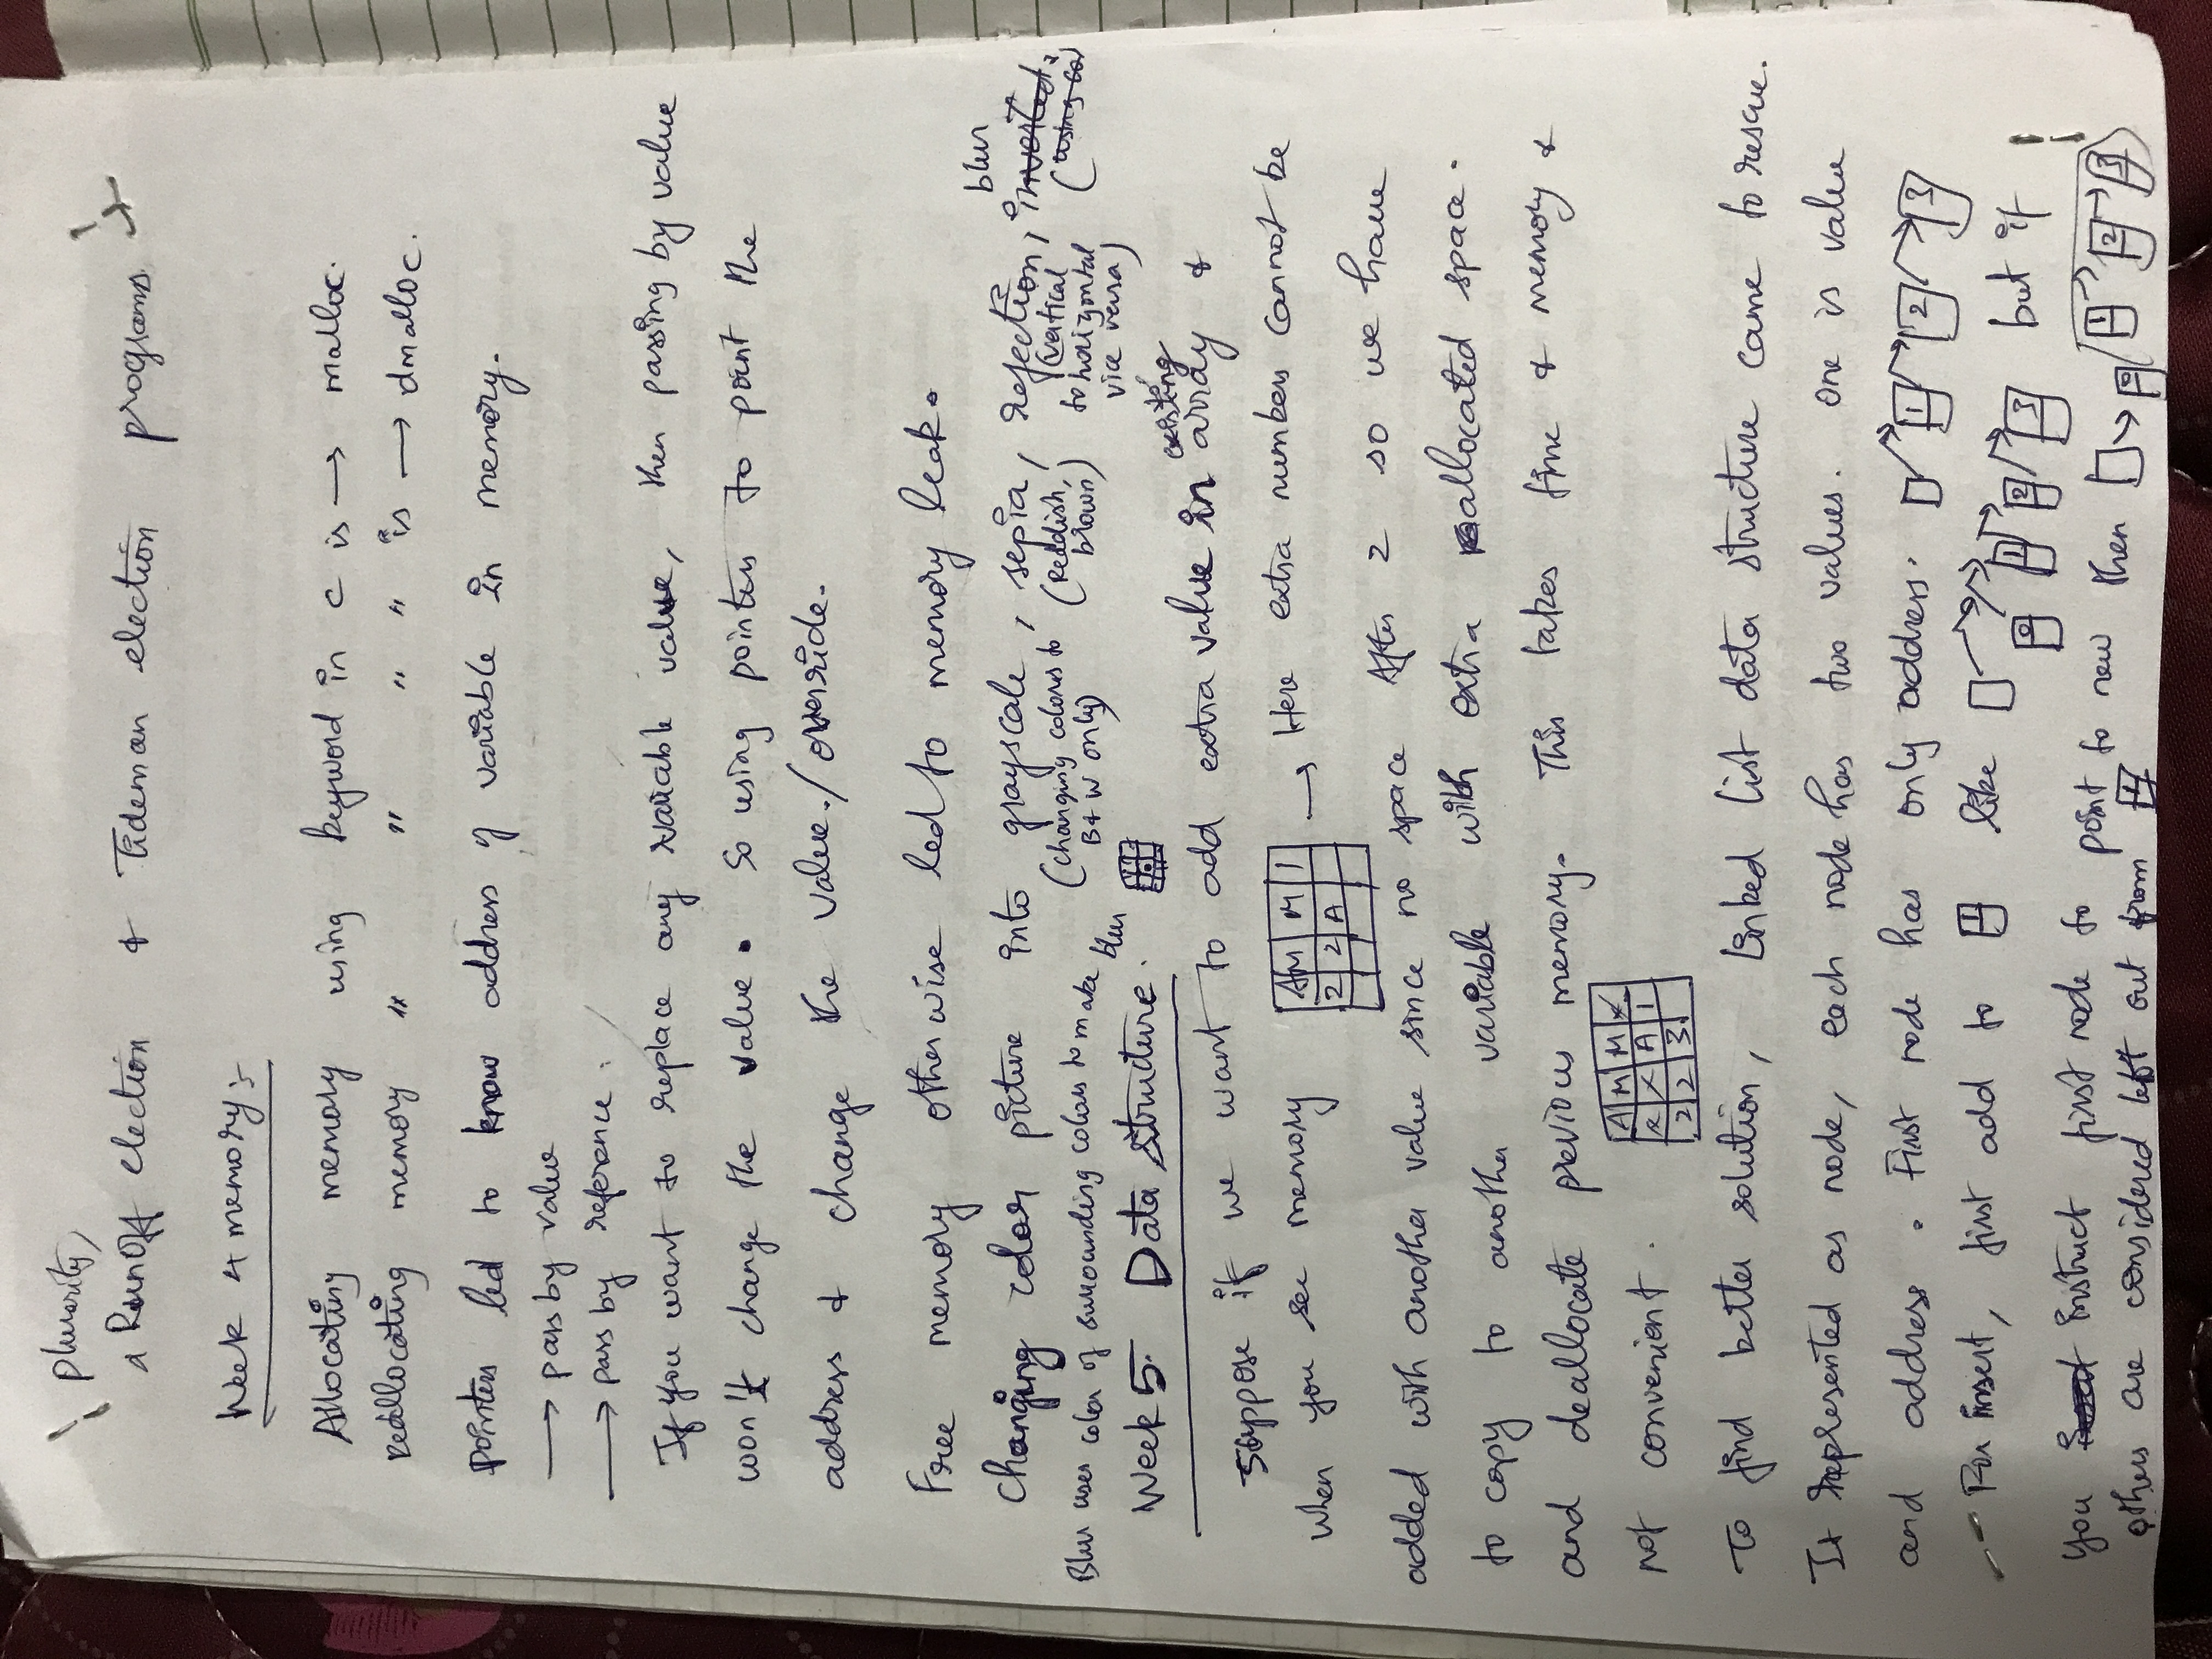 plurarity,
a Runoff election & Tideman election programs
Week 4 memory :-
Allocating memory using keyword in c is → malloc.
reallocating memory " " " " is → dmalloc.
pointers led to know address of variable in memory.
→ pass by value
→ pass by reference.
If you want to replace any variable value, then passing by value
won't change the value. So using pointers to point the
address & change the value./override.
Free memory otherwise led to memory leak.
blur
Changing color picture into grayscale, sepia, reflection, inverted,
(changing colors to B & W only) (Reddish, brown) (vertical to horizontal vice versa) (using co)
Blur uses color of surrounding colors to make blur
Week 5. Data structure.
existing
Suppose if we want to add extra value in array &
when you see memory → Here extra numbers cannot be
A M M 1
2 2 A
added with another value since no space After 2 so we have
to copy to another variable with extra reallocated space.
and deallocate previous memory. This takes time & memory &
not convenient.
A M M x
x x A 1
2 2 3
To find better solution, Linked list data structure came to rescue.
It represented as node, each node has two values. one is value
and address. First node has only address. 1 2 3
- For insert, first add to 1 like 0 1 2 3 but if
you instruct first node to point to new then 0 1 2 3
others are considered left out from 1